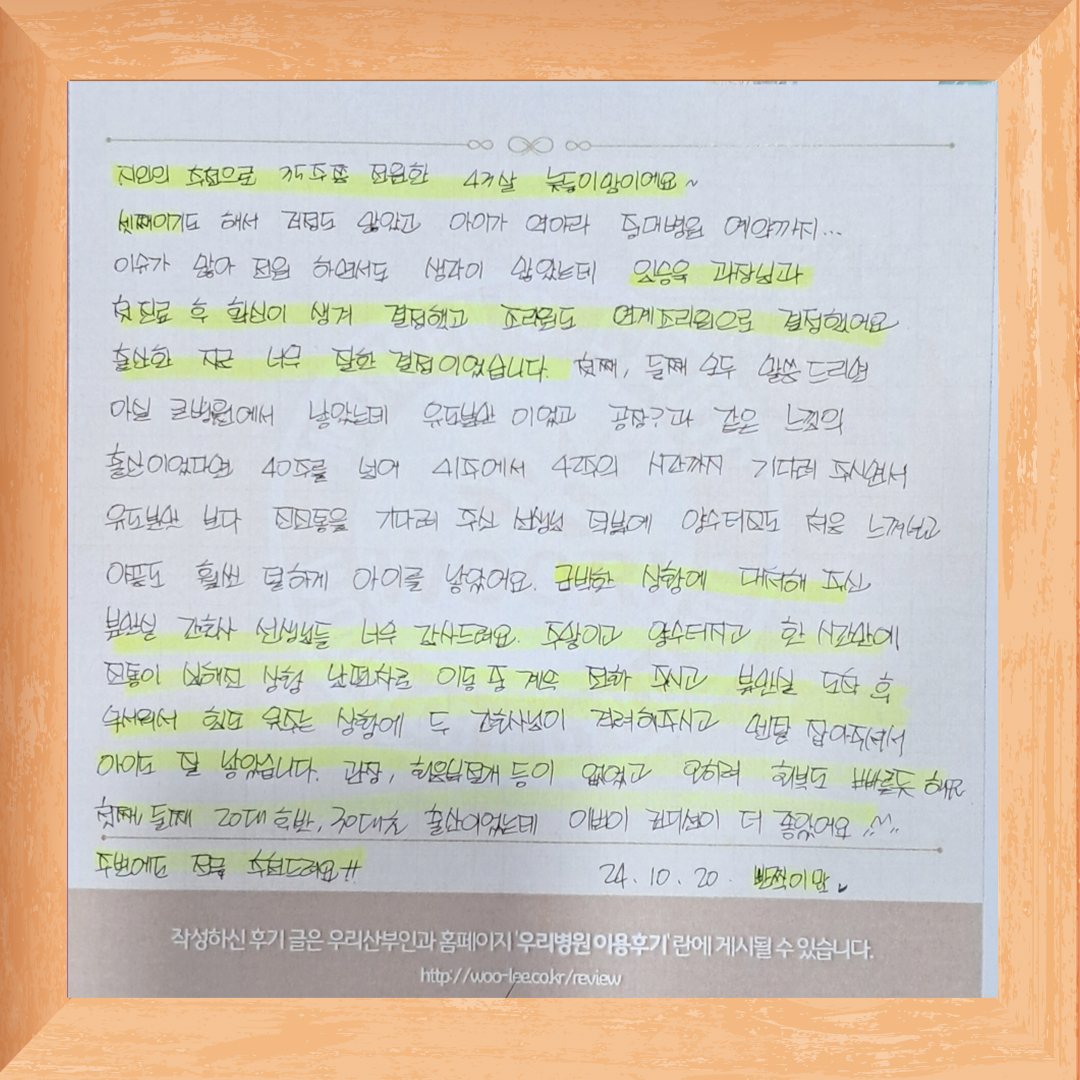 지인의 추천으로 35주쯤 전원한 43살 늦둥이맘이에요~
셋째이기도 해서 걱정도 많았고 아이가 역아라 충대병원 예약까지...
이슈가 많아 전원 하면서도 생각이 많았는데 임승욱 과장님과
첫진료 후 확신이 생겨 결정했고 조리원도 연계조리원으로 결정했어요
출산한 지금 너무 잘한 결정이었습니다. 첫째, 둘째 모두 말씀드리면
아실 큰병원에서 낳았는데 유도분만 이었고 공장?과 같은 느낌의
출산이었다면 40주를 넘어 41주에서 42주의 시간까지 기다려 주시면서
유도분만 보다 진진통을 기다려 주신 선생님 덕분에 양수터짐도 처음 느껴보고
아픔도 훨씬 덜하게 아이를 낳았어요. 급박한 상황에 대처해 주신
분만실 간호사 선생님들 너무 감사드려요. 주말이고 양수터지고 한 시간만에
진통이 심해진 상황 남편차로 이동 중 계속 전화 주시고 분만실 도착 후
무서워서 힘도 못주는 상황에 두 간호사님이 격려해주시고 멘탈 잡아주셔서
아이도 잘 낳았습니다. 관장, 회음부절개 등이 없었고 오히려 회복도 빠른듯 해요
첫째, 둘째 20대 후반, 30대초 출산이었는데 이번이 컨디션이 더 좋았어요
주변에도 적극 추천드려요!!
24. 10. 20. 반짝이맘
작성하신 후기 글은 우리산부인과 홈페이지 '우리병원 이용후기' 란에 게시될 수 있습니다.
http://woo-lee.co.kr/review